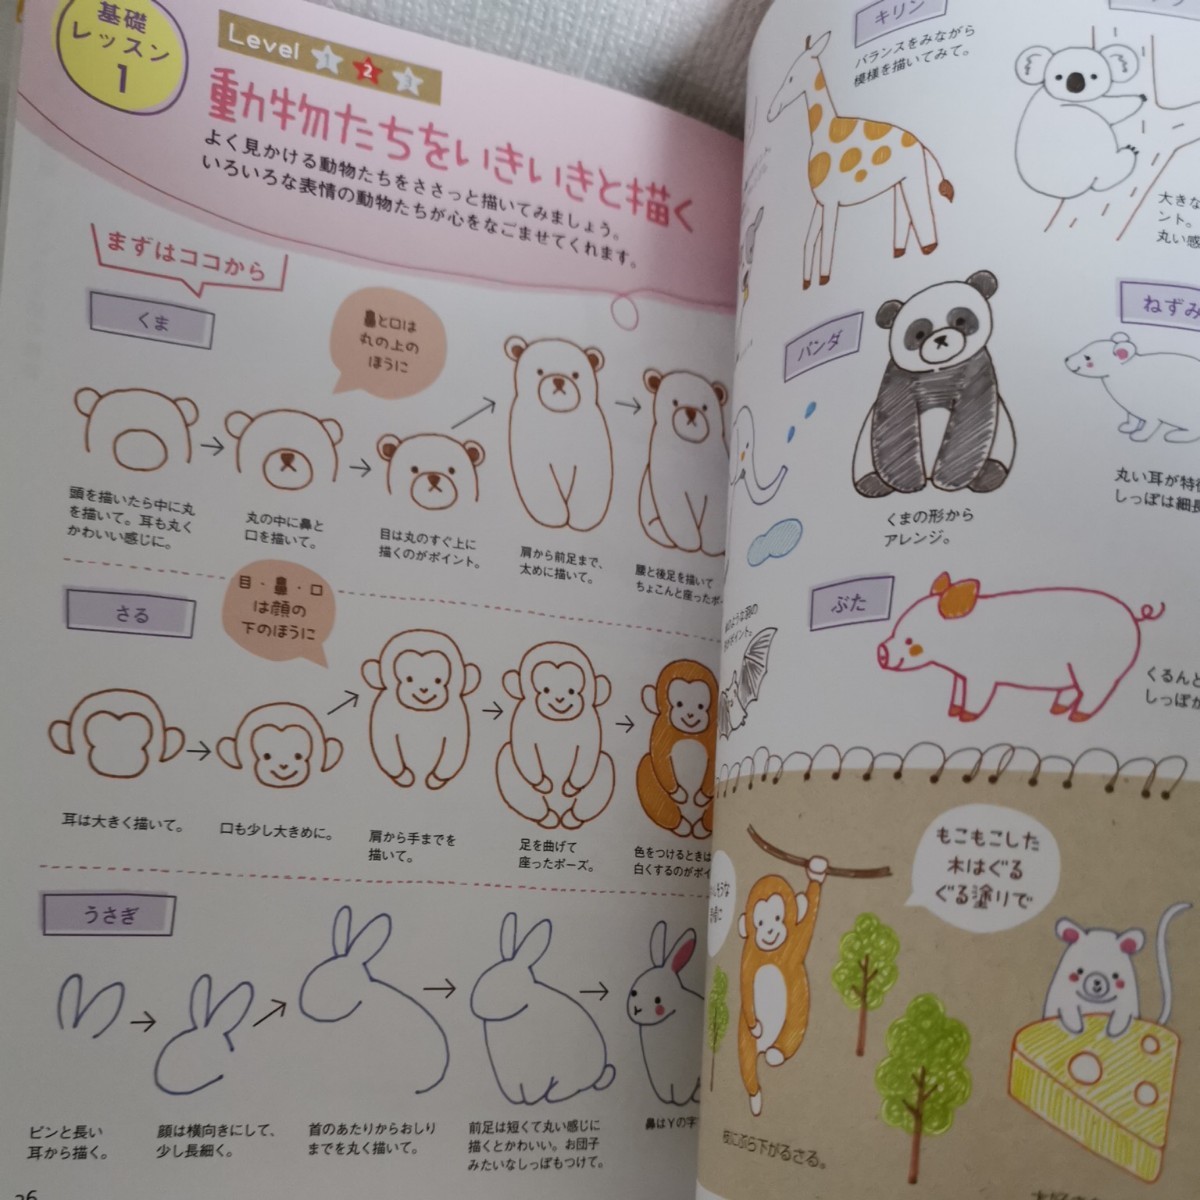 基礎
レッスン
1
Level 1 2 3
動物たちをいきいきと描く
よく見かける動物たちをささっと描いてみましょう。
いろいろな表情の動物たちが心をなごませてくれます。
まずはココから
くま
鼻と口は
丸の上の
ほうに
頭を描いたら中に丸
を描いて。耳も丸く
かわいい感じに。
丸の中に鼻と
口を描いて。
目は丸のすぐ上に
描くのがポイント。
肩から前足まで、
太めに描いて。
腰と後足を描いて
ちょこんと座ったポ
さる
目・鼻・口
は顔の
下のほうに
耳は大きく描いて。
口も少し大きめに。
肩から手までを
描いて。
足を曲げて
座ったポーズ。
色をつけるときは
白くするのがポイ
うさぎ
ピンと長い
耳から描く。
顔は横向きにして、
少し長細く。
首のあたりからおしり
までを丸く描いて。
前足は短くて丸い感じに
描くとかわいい。お団子
みたいなしっぽもつけて。
鼻はYの字
キリン
バランスをみながら
模様を描いてみて。
大きな
ント。
丸い感
パンダ
くまの形から
アレンジ。
ねずみ
丸い耳が特徴
しっぽは細長
ぶた
くるんと
しっぽが
もこもこした
木はぐる
ぐる塗りで
枝にぶら下がるさる。